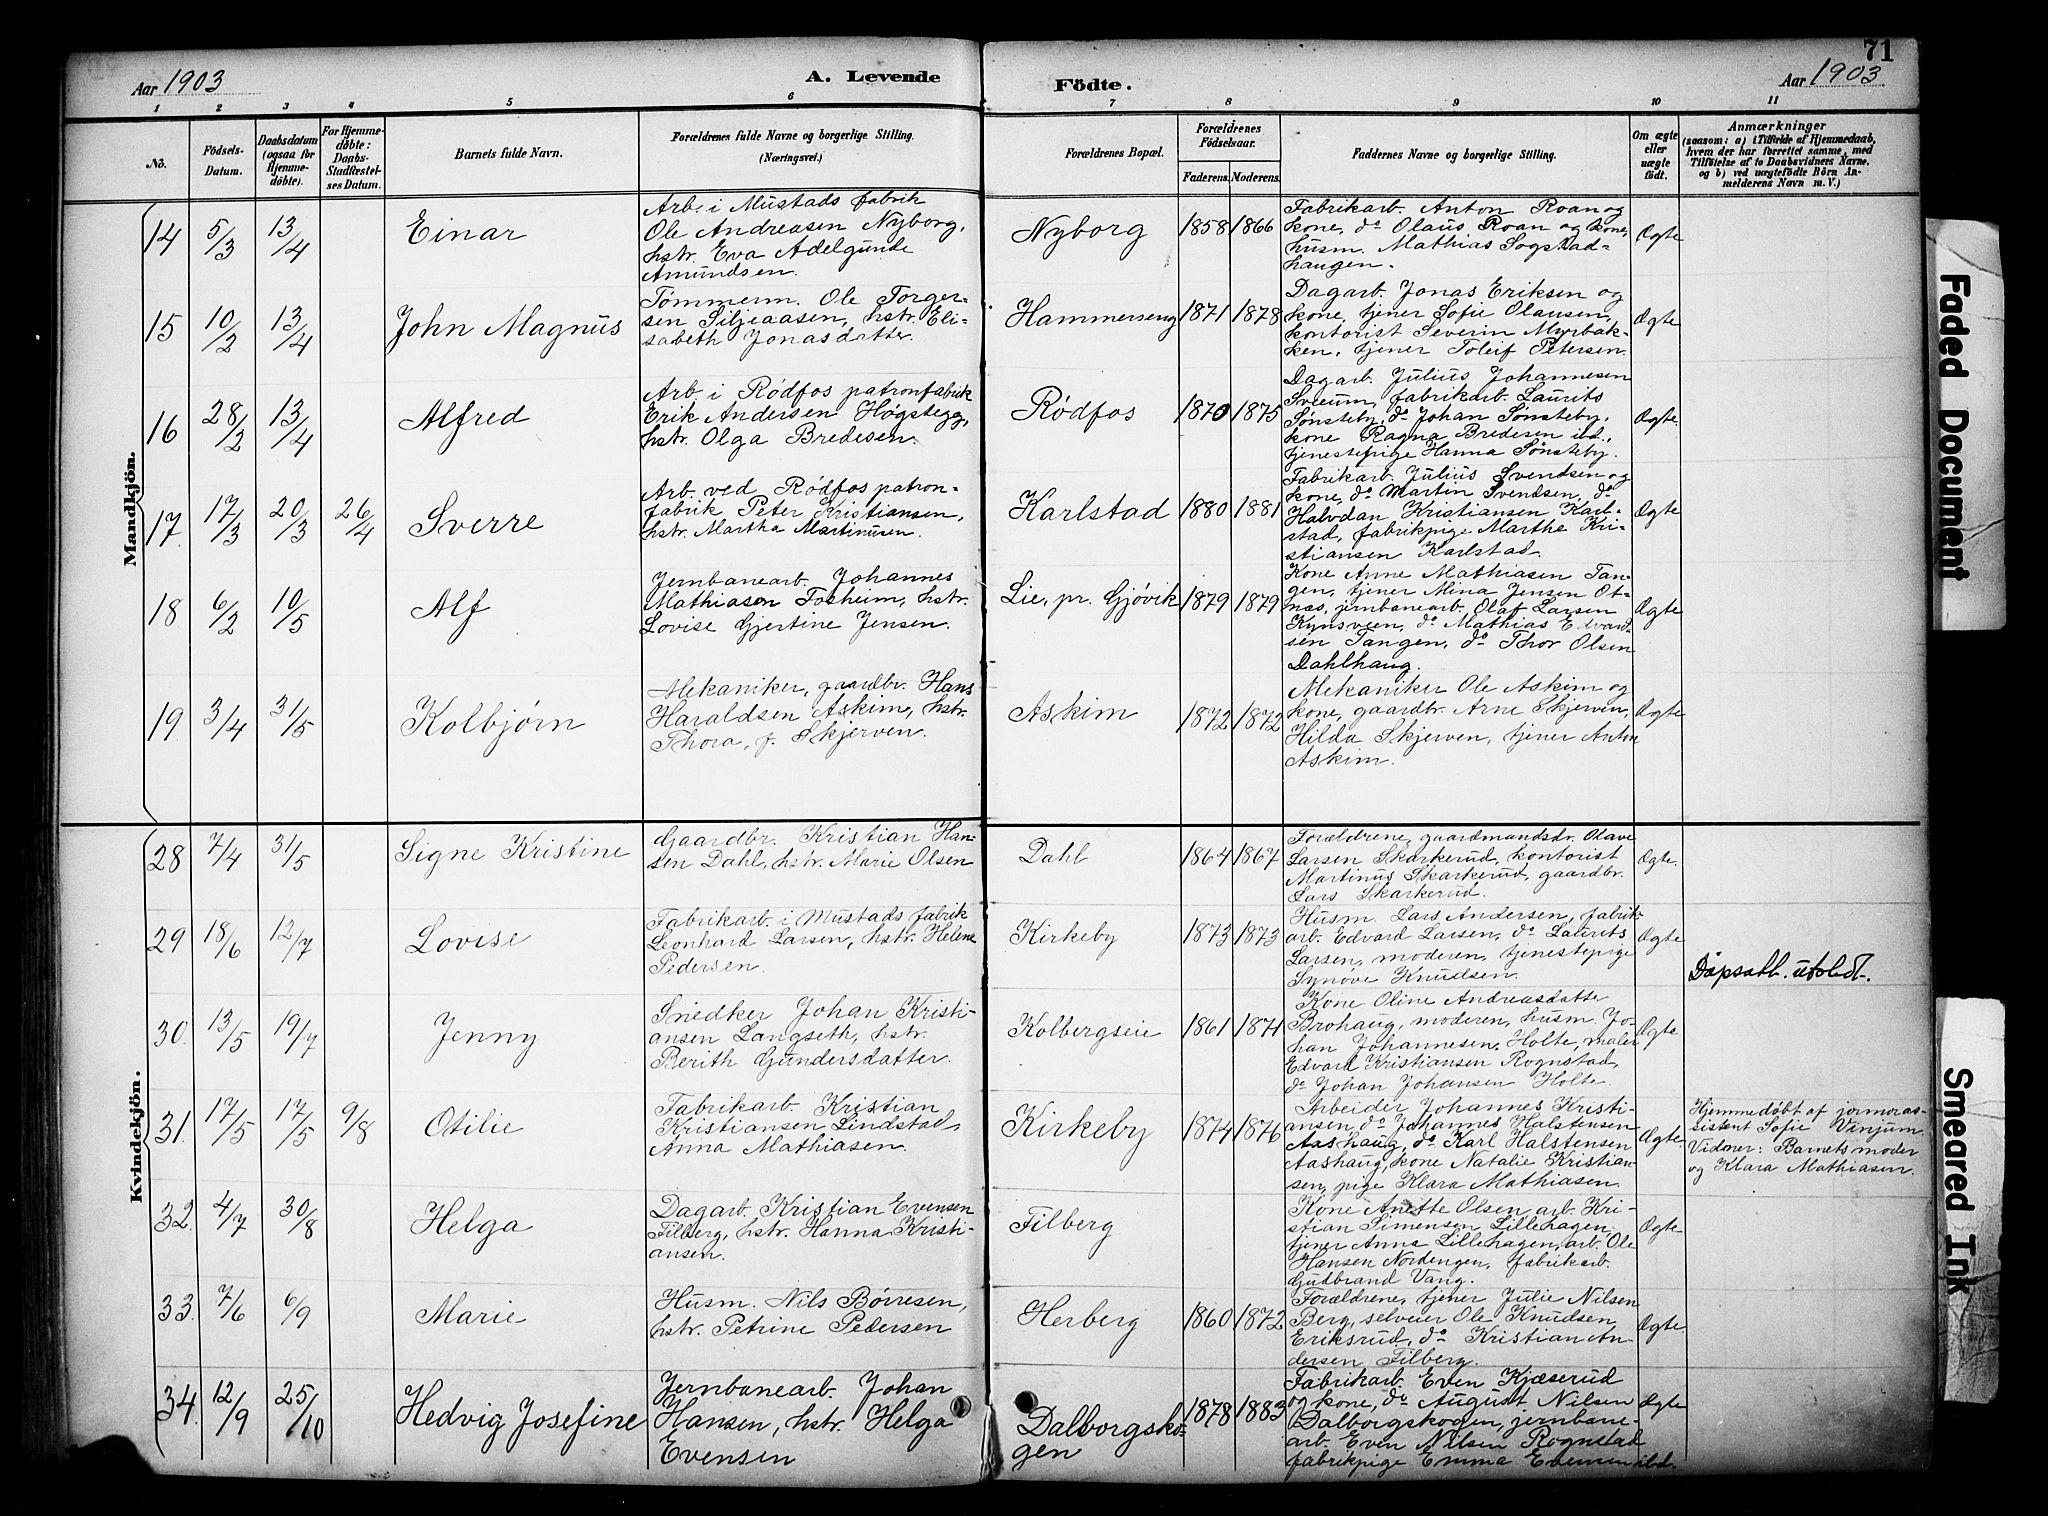 71
Aar 1903
A. Levende
Födte.
Aar 1903
1 2 3 4 5 6 7 8 9 10 11
No.
Födsels-
Datum.
Daabsdatum
(ogsaa for
Hjemme-
döbte).
For Hjemme-
döbte:
Daabs-
Stadfæstel-
ses Datum.
Barnets fulde Navn.
Forældrenes fulde Navne og borgerlige Stilling.
(Næringsvei.)
Forældrenes Bopæl.
Forældrenes
Födselsaar.
Faderens. Moderens.
Faddernes Navne og borgerlige Stilling.
Om ægte
eller
uægte
födt.
Anmærkninger
(saasom: a) i Tilfælde af Hjemmedaab,
hvem der har forrettet samme, med
Tilföielse af to Daabsvidners Navne.
og b) ved uægtefödte Börn An-
melderens Navn m. V.)
Mandkjön.
14 5/3 13/4 Einar
Arb. i Mustads fabrik
Ole Andreasen Nyborg,
hstr. Eva Adelgunde
Amundsen.
Nyborg 1858 1866
Fabrikarb. Anton Roan og
kone, do Olaus Roan og kone,
husm. Mathias Sogstad-
haugen.
Ægte
15 10/2 13/4 John Magnus
Tømmerm. Ole Torger-
sen Siljeaasen, hstr. Eli-
sabeth Jonasdatter.
Hammerseng 1871 1878
Dagarb. Jonas Eriksen og
kone, tjener Sofie Olausen,
kontorist Severin Myrbak-
ken, tjener Toleif Petersen.
Ægte
16 28/2 13/4 Alfred
Arb. i Rødfos patronfabrik
Erik Andersen Høgstegg,
hstr. Olga Bredesen.
Rødfos 1870 1875
Dagarb. Julius Johannesen
Sveum, fabrikarb. Laurits
Sønsteby, do Johan Sønsteby,
kone Ragna Bredesen ibd.,
tjenestepige Hanna Sønsteby.
Ægte
17. 17/3 20/3 26/4 Sverre
Arb. ved Rødfos patron-
fabrik Peter Kristiansen,
hstr. Martha Martinusen.
Karlstad 1880 1881
Fabrikarb. Julius Svendsen og
kone, do Martin Svendsen, do
Halvdan Kristiansen Karl-
stad, fabrikpige Marthe Kri-
stiansen Karlstad.
Ægte
18 6/2 10/5 Alf
Jernbanearb. Johannes
Mathiasen Fosheim, hstr.
Lovise Gjertine Jensen.
Lie, pr. Gjøvik 1879 1879
Kone Anne Mathiasen Tan-
gen, tjener Mina Jensen Ot-
nas, jernbanearb. Olaf Larsen
Kynsveen, do Mathias Edvard-
sen Tangen, do Thor Olsen
Dahlhaug.
Ægte
19 3/4 31/5 Kolbjørn
Mekaniker, gaardbr. Hans
Haraldsen Askim, hstr.
Thora, f. Skjerven.
Askim 1872 1872
Mekaniker Ole Askim og
kone, gaardbr. Arne Skjerven,
Hilda Skjerven, tjener Anton
Askim.
Ægte
Kvindekjön.
28 7/4 31/5 Signe Kristine
Gaardbr. Kristian Han-
sen Dahl, hstr. Marie Olsen
Dahl 1864 1867
Forældrene, gaardmandsdr. Olave
Larsen Skarkerud, kontorist
Martinus Skarkerud, gaardbr.
Lars Skarkerud.
Ægte.
29 18/6 12/7 Lovise
Fabrikarb. i Mustads fabrik
Leonhard Larsen, hstr. Helene
Pedersen.
Kirkeby 1873 1873
Husm. Lars Andersen, fabrik-
arb. Edvard Larsen, do Laurits
Larsen, moderen, tjenestepige
Synøve Knudsen.
Ægte
Dåpsatt. utstedt.
30. 13/5 19/7 Jenny
Snedker Johan Kristi-
ansen Langseth, hstr.
Berith Gundersdatter.
Kolbergseie 1861 1871
Kone Oline Andreasdatter
Brohaug, moderen, husm. Jo-
han Johannesen Holte, maler
Edvard Kristiansen Rognstad,
do Johan Johansen Holte.
Ægte
31. 17/5 17/5 9/8 Otilie
Fabrikarb. Kristian
Kristiansen Lindstad,
Anna Mathiasen.
Kirkeby 1874 1876
Arbeider Johannes Kristi-
ansen do Johannes Halstensen
Aashaug, do Karl Halstensen
Aashaug, kone Natalie Kristian-
sen, pige Klara Mathiasen.
Ægte
Hjemmedøbt af jormoras-
sistent Sofie Vinjum.
Vidner: Barnets moder
og Klara Mathiasen.
32. 4/7 30/8 Helga
Dagarb. Kristian Evensen
Filberg, hstr. Hanna Kristi-
ansen.
Filberg
Kone Anette Olsen, arb. Kri-
stian Simensen Lillehagen,
tjener Anna Lillehagen, arb. Ole
Hansen Nordengen, fabrikarb.
Gudbrand Vang.
Ægte
33. 7/6 6/9 Marie
Husm. Nils Børresen,
hstr. Petrine Pedersen
Herberg 1860 1872
Forældrene, tjener Julie Nilsen
Berg, selveier Ole Knudsen
Eriksrud, do Kristian An-
dersen Filberg.
Ægte.
34. 12/9 25/10 Hedvig Josefine
Jernbanearb. Johan
Hansen, hstr. Helga
Evensen
Dalborgsko-
gen
1878 1883
Fabrikarb. Even Kjæserud
og kone, do August Nilsen
Dalborgskogen, jernbane-
arb. Even Nilsen Rognstad
fabrikpige Emma Evensen ibd.
Ægte
Faded Document
Smeared Ink